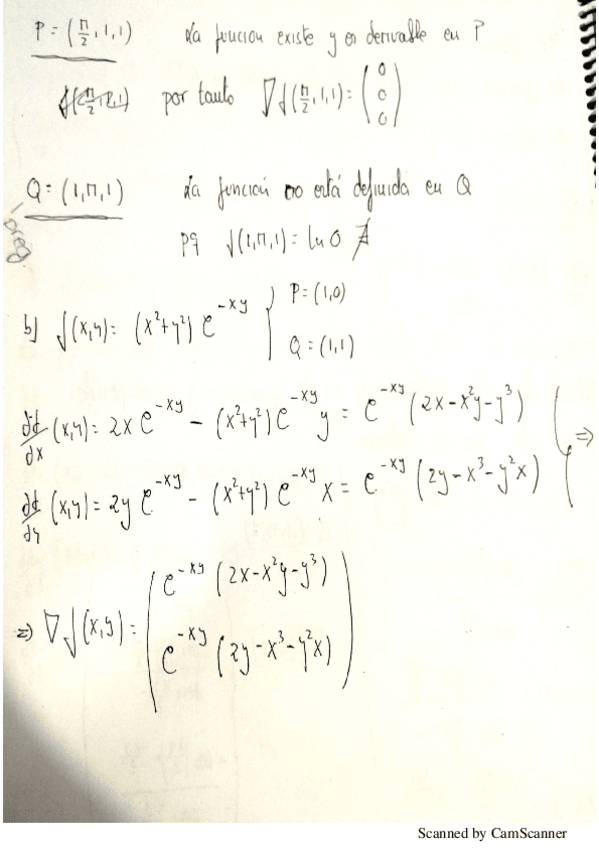 P = (π/2, 1, 1) La función existe y es derivable en P
por tanto ∇f(π/2, 1, 1) = (0 0 0)
Q = (1, π, 1) La función no está definida en Q
preg.
pq f(1, π, 1) = ln 0 ∄
b) f(x,y) = (x²+y²) e^{-xy} } P = (1,0)
Q = (1,1)
df/dx (x,y) = 2x e^{-xy} - (x²+y²) e^{-xy} y = e^{-xy} (2x - x²y - y³)
df/dy (x,y) = 2y e^{-xy} - (x²+y²) e^{-xy} x = e^{-xy} (2y - x³ - y²x) ⇒
⇒ ∇f(x,y) = ( e^{-xy} (2x - x²y - y³)
e^{-xy} (2y - x³ - y²x) )
Scanned by CamScanner